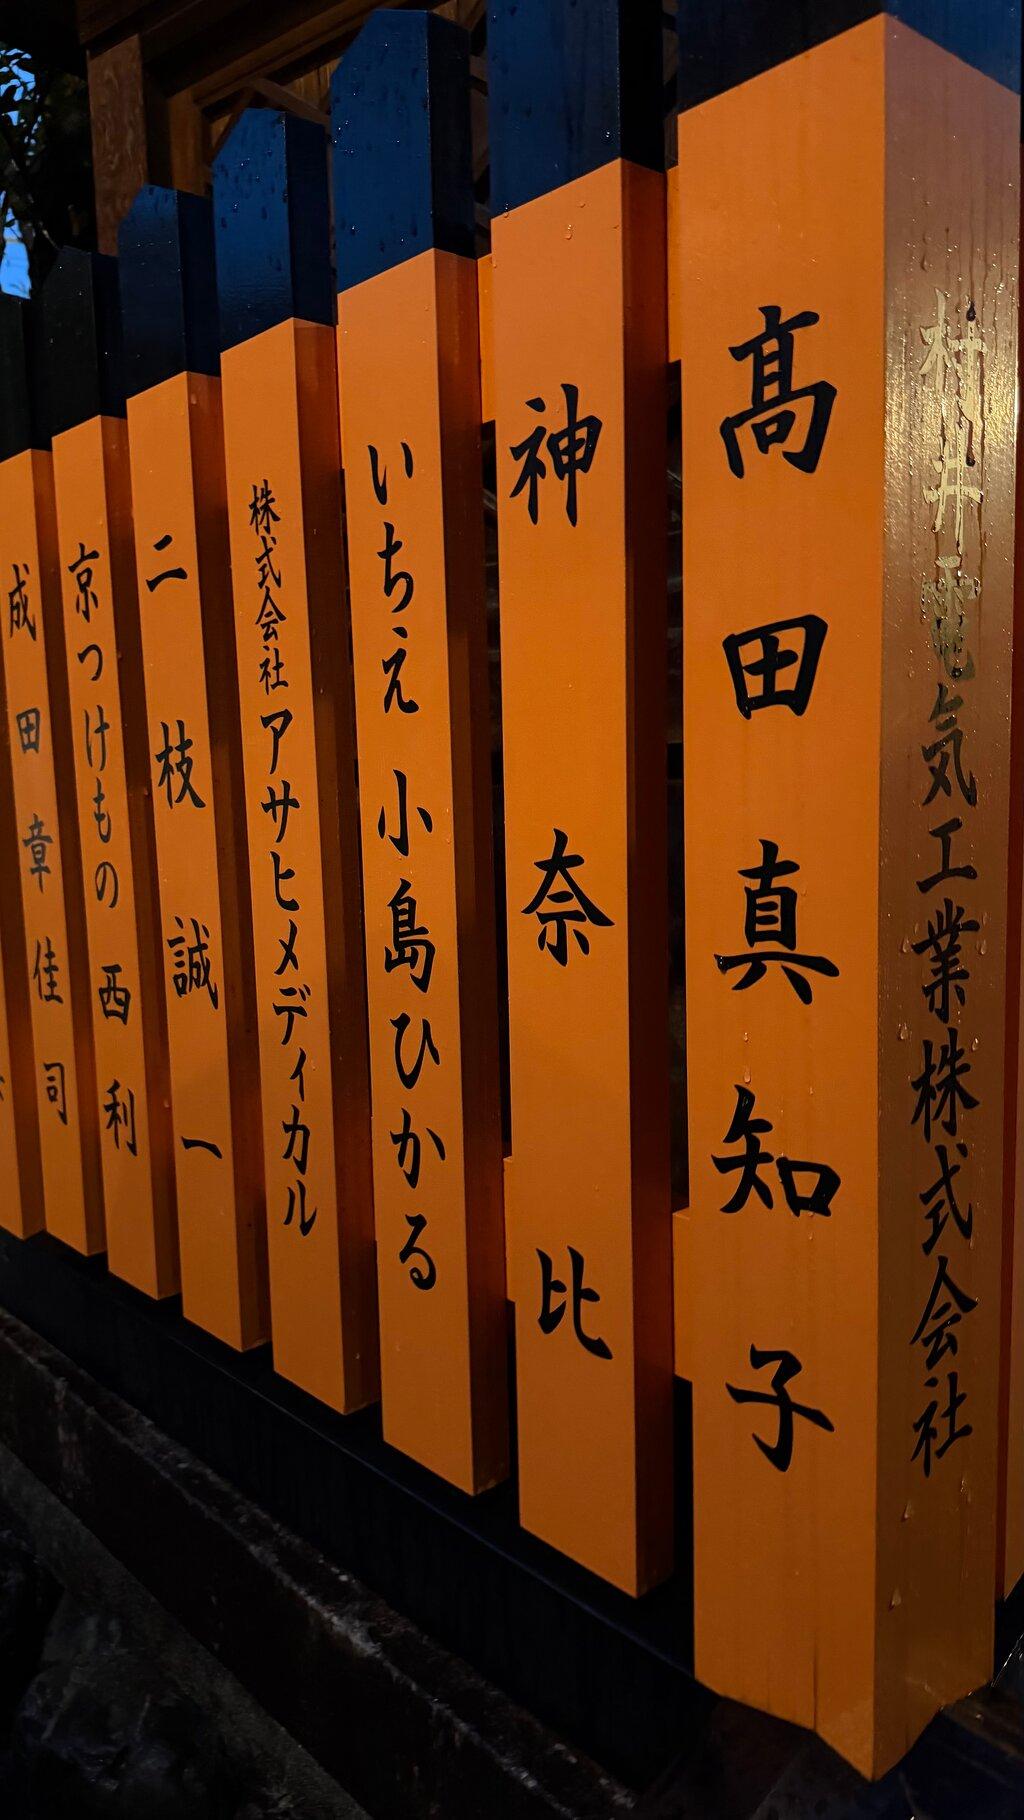 村井電気工業株式会社
髙田真知子
神奈比
いちえ 小島ひかる
株式会社アサヒメディカル
二枝誠一
京つけもの 西利
成田章佳司